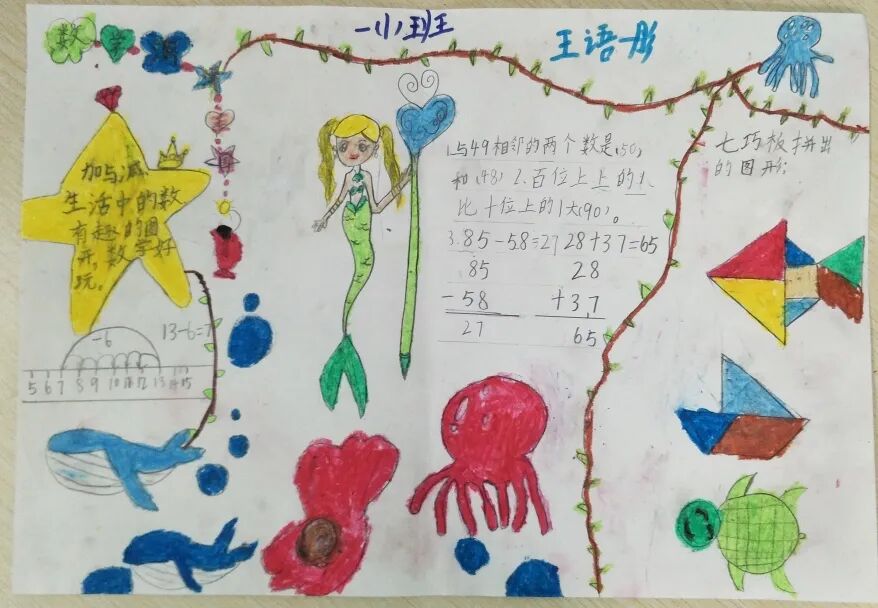 一小1班
王语彤
数学
加与减
生活中的数
有趣的图
开,数学好
玩。
13-6=7
-6
5 6 7 8 9 10 11 12 13 14 15
1.与49相邻的两个数是(50)
和(48) 2.百位上的1
比十位上的1大(90)。
3.85-58=27 28+37=65
85 28
-58 +37
27 65
七巧板拼出
的图形: